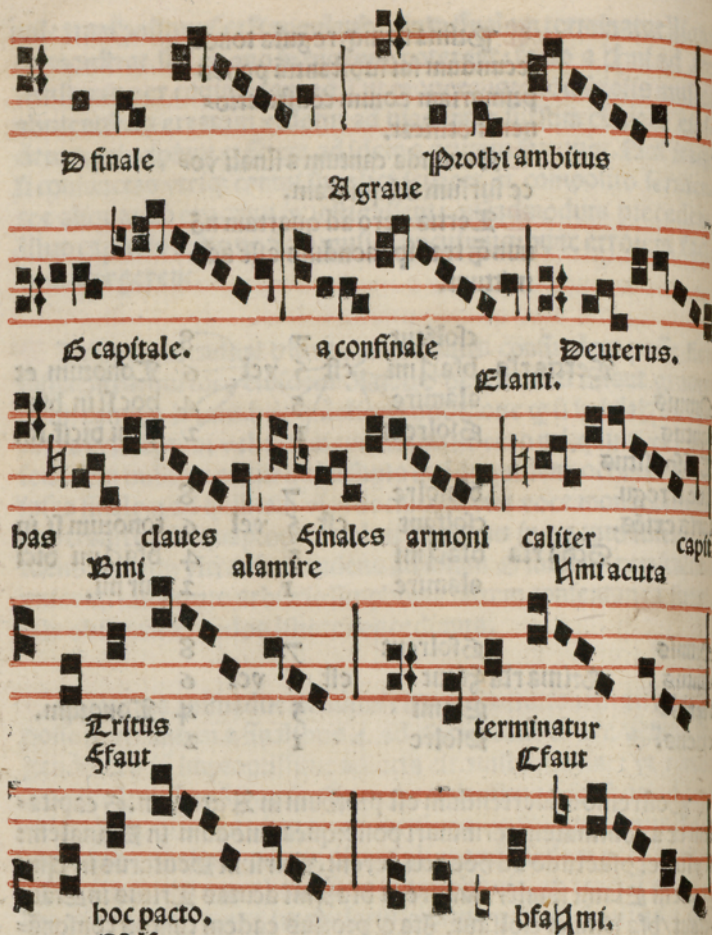 D finale Prothi ambitus
A graue
G capitale. a confinale Deuterus.
Elami.
has claues finales armoni caliter capit
Bmi alamire ♮mi acuta
Tritus terminatur
Ffaut Cfaut
hoc pacto. bfa♮mi.